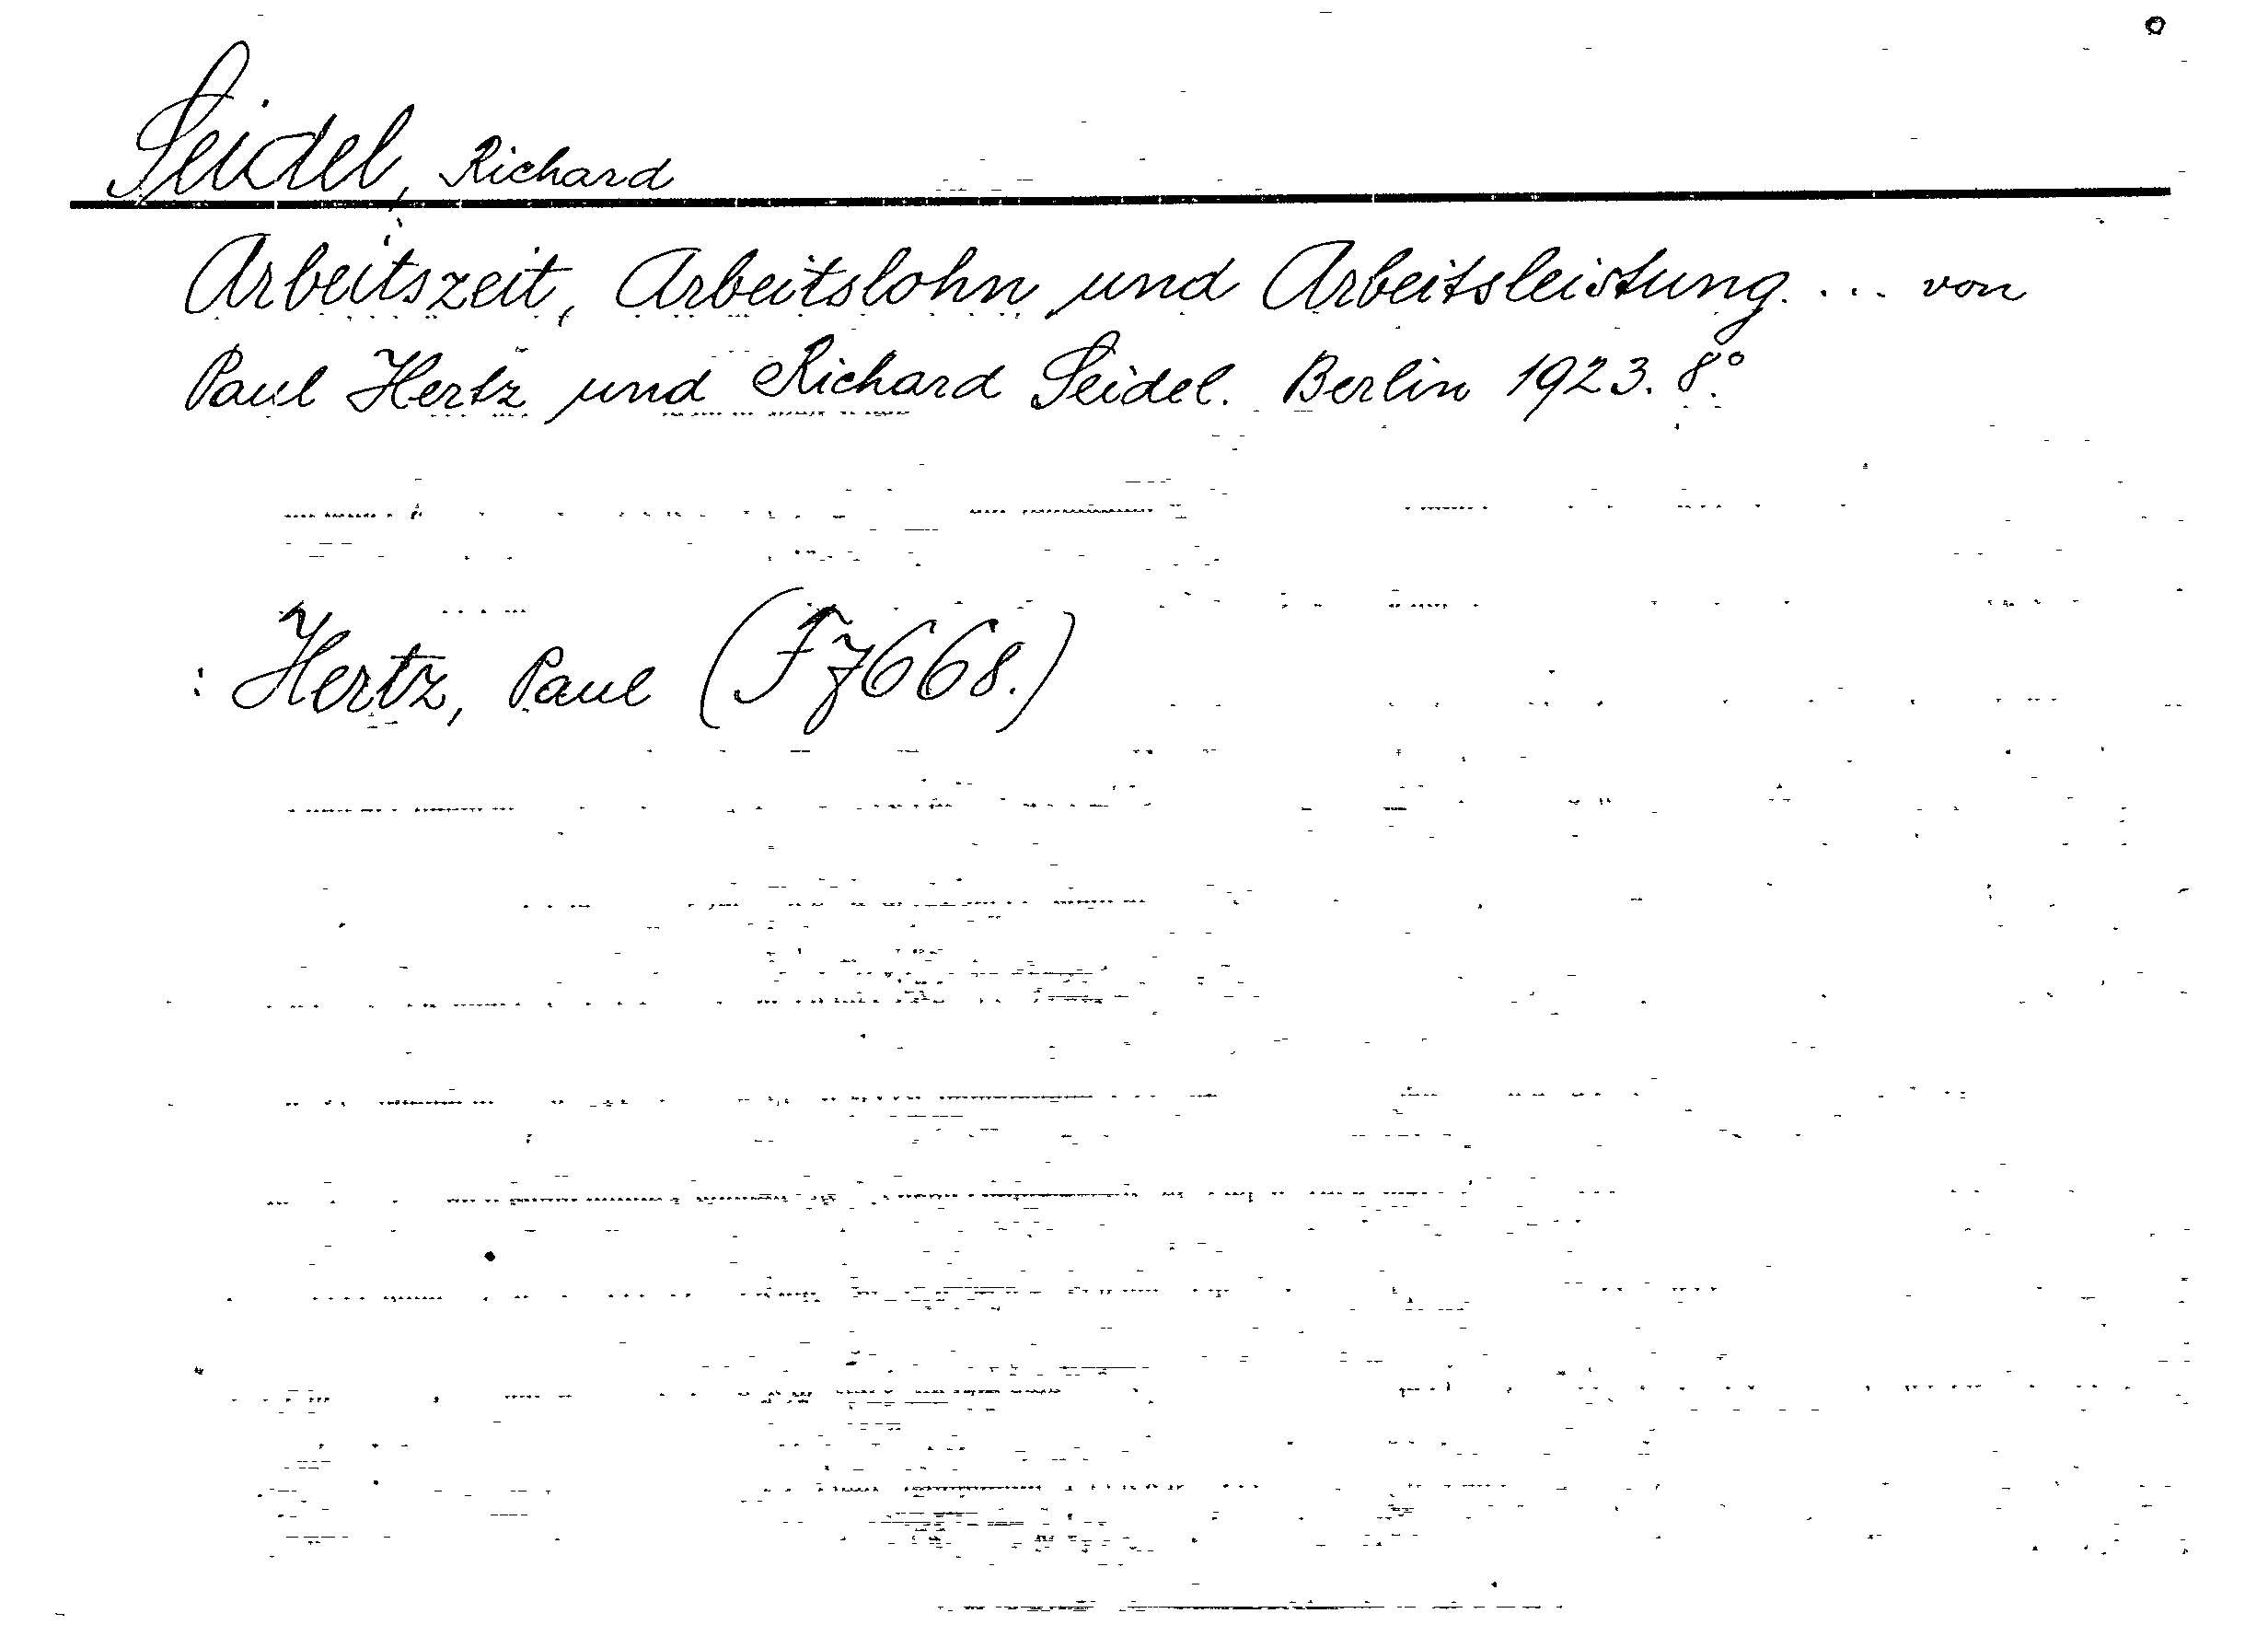 Seidel, Richard
Arbeitszeit, Arbeitslohn und Arbeitsleistung. ... von
Paul Hertz und Richard Seidel. Berlin 1923. 8°.
: Hertz, Paul (F7668.)